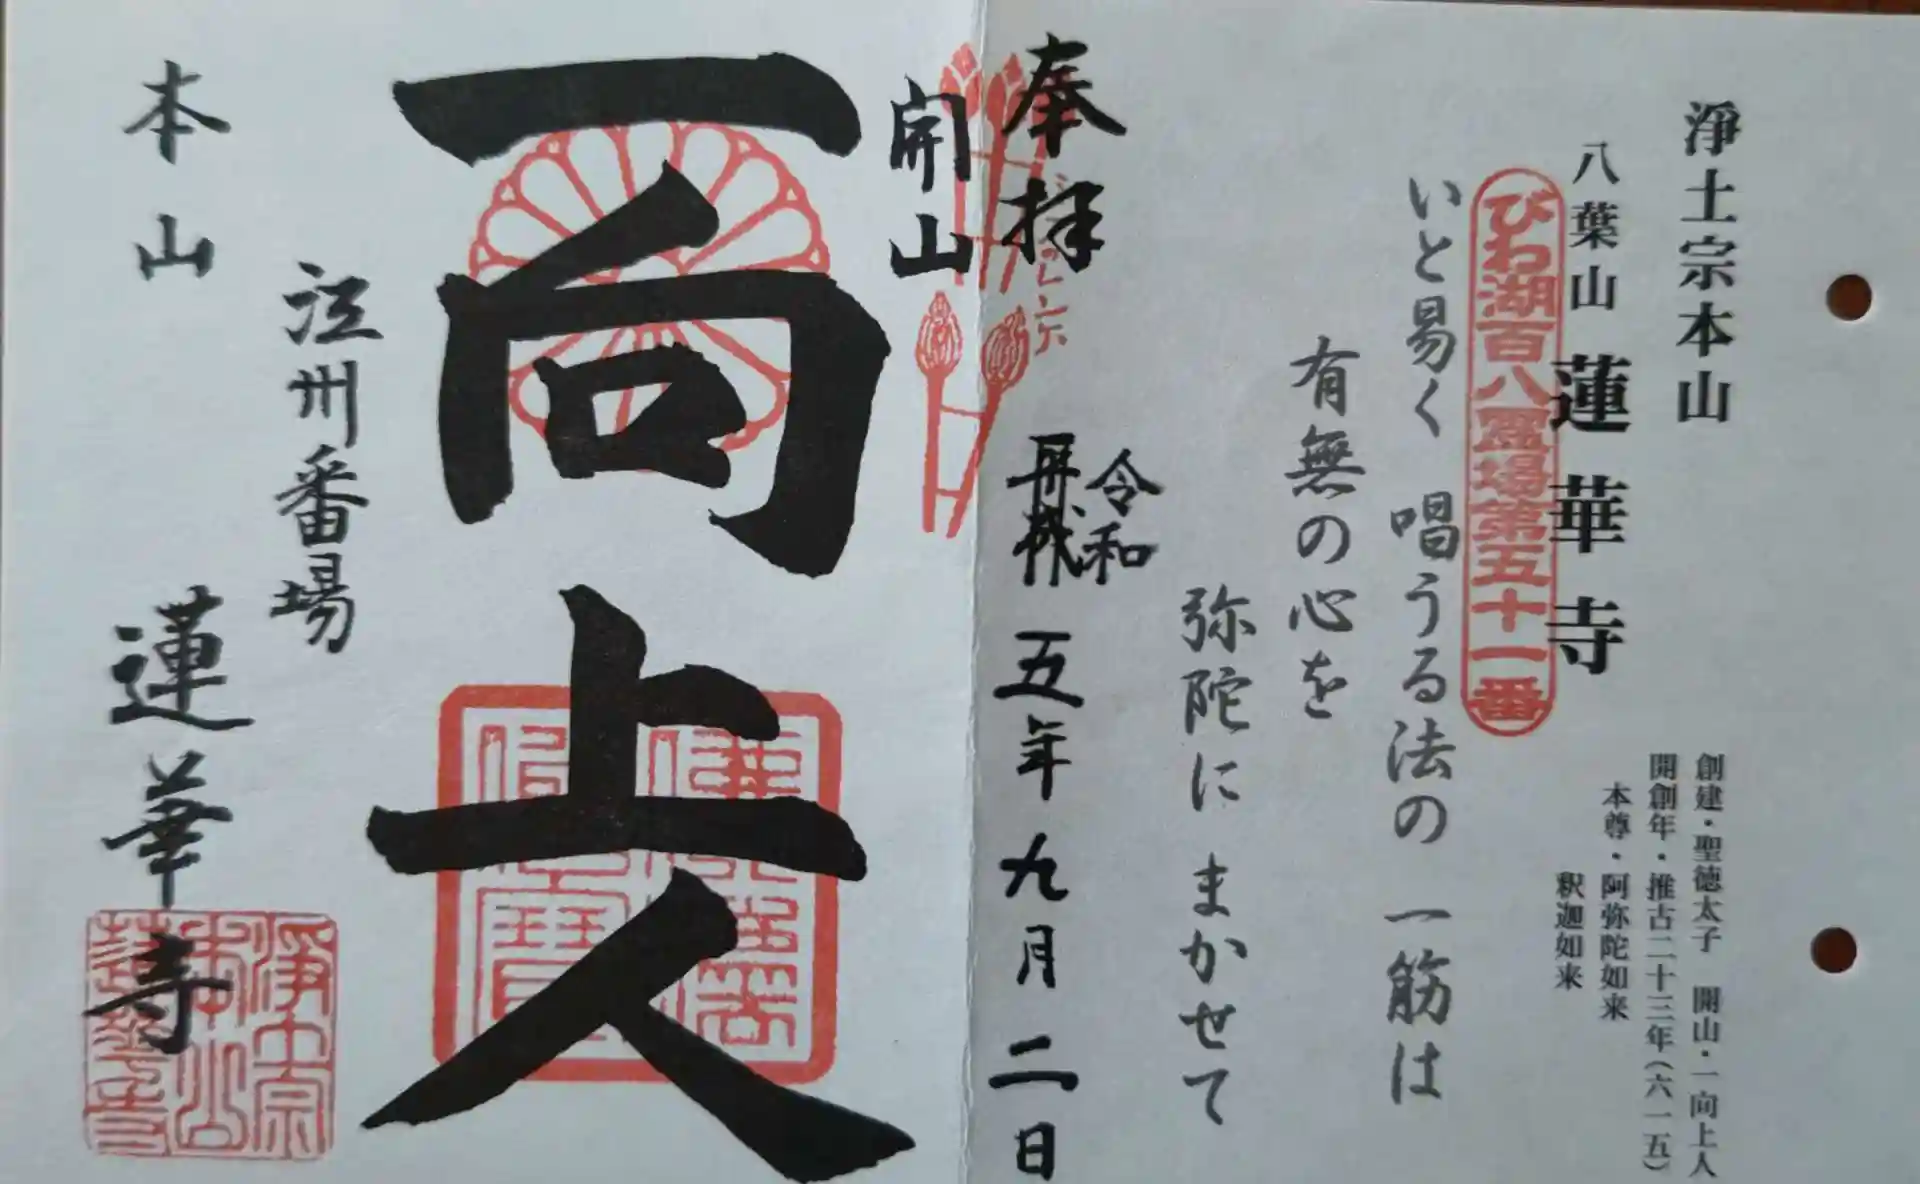 淨土宗本山
八葉山 蓮華寺
創建・聖德太子 開山・一向上人
開創年・推古二十三年(六一五)
本尊・阿弥陀如来
釈迦如来
びわ湖百八霊場第五十一番
いと易く 唱うる法の 一筋は
有無の心を
弥陀に まかせて
奉拝
令和
五年 九月 二日
開山
一向上人
江州番場
本山 蓮華寺
淨土宗
本山
蓮華寺